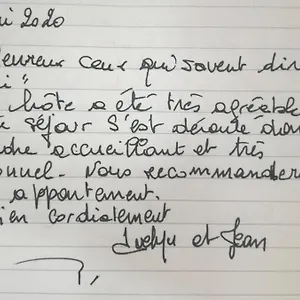 i 2020
eureux ceux qui savent dir
i"
hôte a été très agréable
séjour s'est déroulé dan
accueillant et très
onnel. Nous recommander
appartement.
ien cordialement
Evelyn et Jean